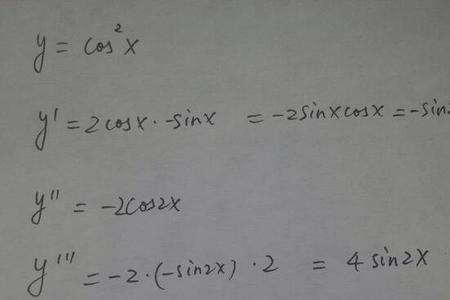 y = cos²x
y' = 2cosx · -sinx = -2sinxcosx = -sin2
y'' = -2cos2x
y''' = -2·(-sin2x)·2 = 4sin2x